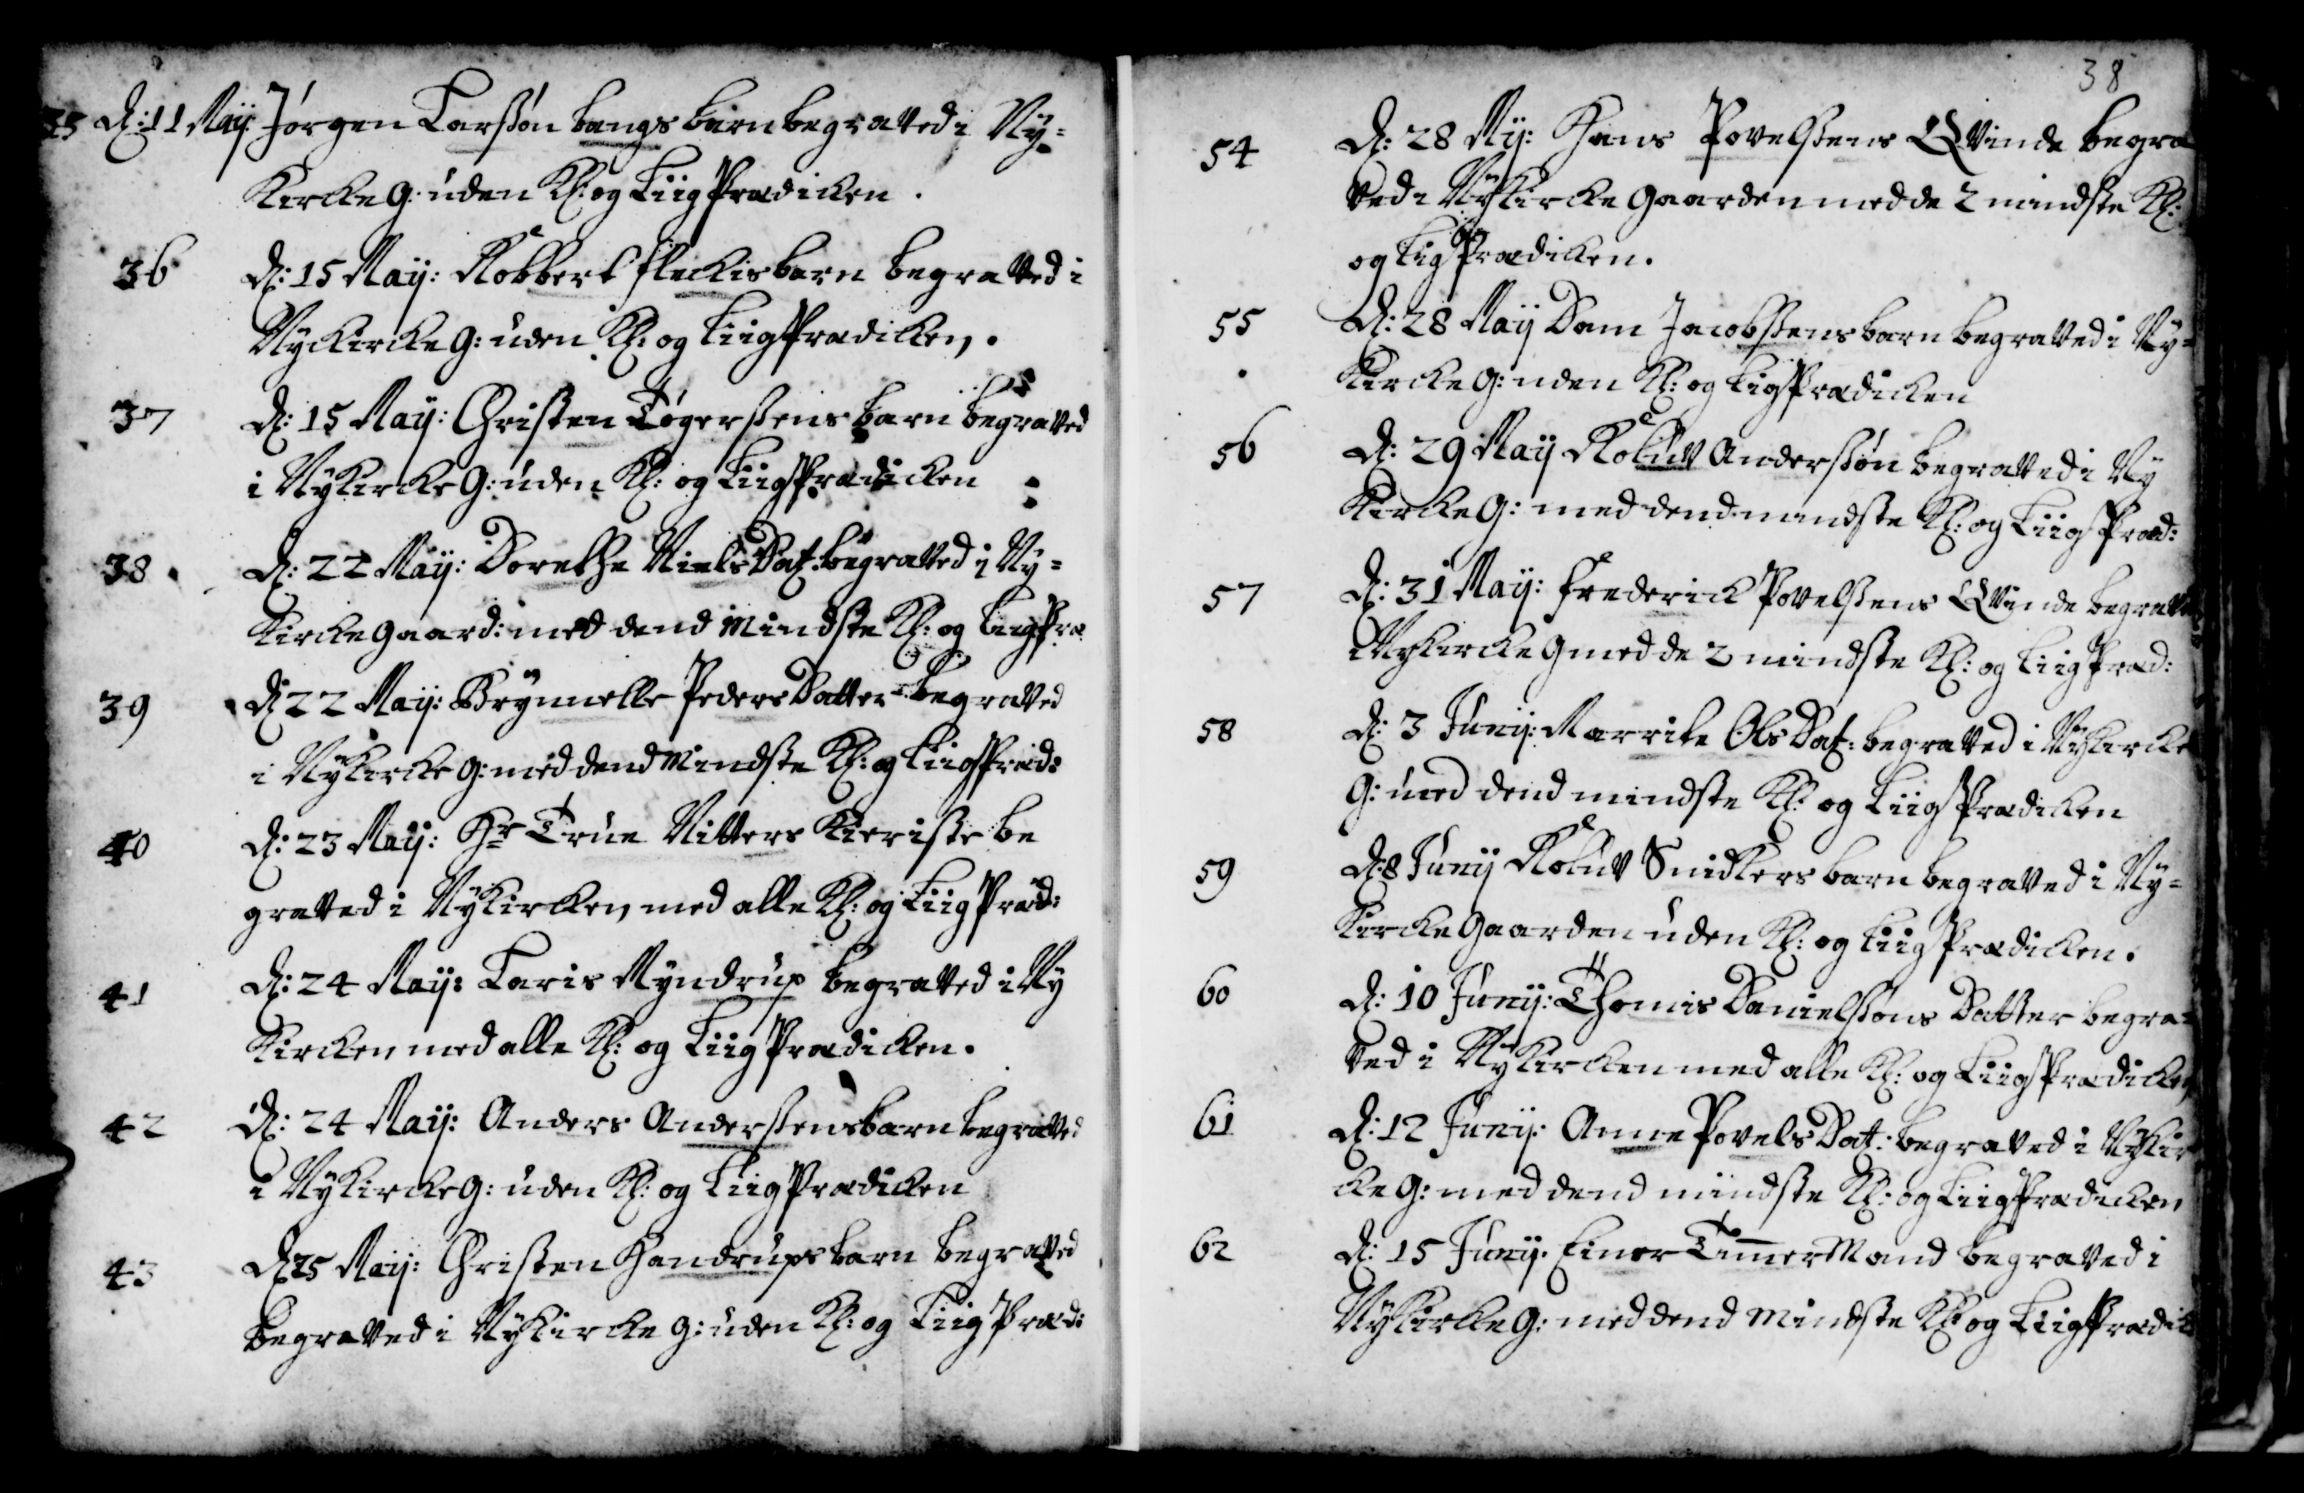 35 D: 11 Maij Jørgen Larssøn bangs barn begraved i Ny=
Kircke G: uden Kl: og Liig Prædicken.
36 D: 15 Maij: Robbert fleckis barn begraved i
Nyckircke G: uden Kl: og Liig Prædicken.
37 D: 15 Maij: Christen Tøgerssens barn begraved
i NyKircke G: uden Kl: og Liig Prædicken
38 D: 22 Maij: Dorethe Niels Dat: begraved i Ny=
Kircke Gaard: med dend Mindste Kl: og Liig Præ
39 D: 22 Maij: Brynnelle Peders Datter begraved
i NyKircke G: med dend Mindste Kl: og Liig Præd:
40 D: 23 Maij: Hr True Nitters Kieriste be
graved i NyKircken med alle Kl: og Liig Præd:
41 D: 24 Maij: Laris Myndrup begraved i Ny
Kircken med alle Kl: og Liig Prædicken.
42 D: 24 Maij: Anders Anderssens barn begraved
i NyKircke G: uden Kl: og Liig Prædicken
43 D: 25 Maij: Christen Handrups barn begraved
begraved i NyKircke G: uden Kl: og Liig Præd:
38
54 D: 28 Mij: Hans Povelssens Qvinde begra
ved i NyKircke Gaarden med de 2 mindste Kl:
og Lig Prædicken.
55 D: 28 Maij Dam Jacobssens barn begraved i Ny=
Kircke G: uden Kl: og Lig Prædicken
56 D: 29 Maij Rolüv Anderssøn begraved i Ny
Kircke G: med dend mindste Kl: og Liig Præd:
57 D: 31 Maij: Frederick Povelssens Qvinde begraved
i NyKircke G med de 2 mindste Kl: og Liig Præd:
58 D: 3 Junij: Marrite Ols Dat: begraved i NyKircke
G: med dend mindste Kl: og Liig Prædicken
59 D: 8 Junij Rolüv Snidkers barn begraved i Ny=
Kircke Gaarden uden Kl: og Liig Prædicken.
60 D: 10 Junij: Thomis Danielssøns Datter begra=
ved i NyKircken med alle Kl: og Liig Prædicken
61 D: 12 Junij: Anne Povels Dat: begraved i NyKir
cke G: med dend mindste Kl: og Liig Prædicken
62 D: 15 Junij: Einer Timmer Mand begraved i
NyKircke G: med dend Mindste Kl: og Liig Prædick